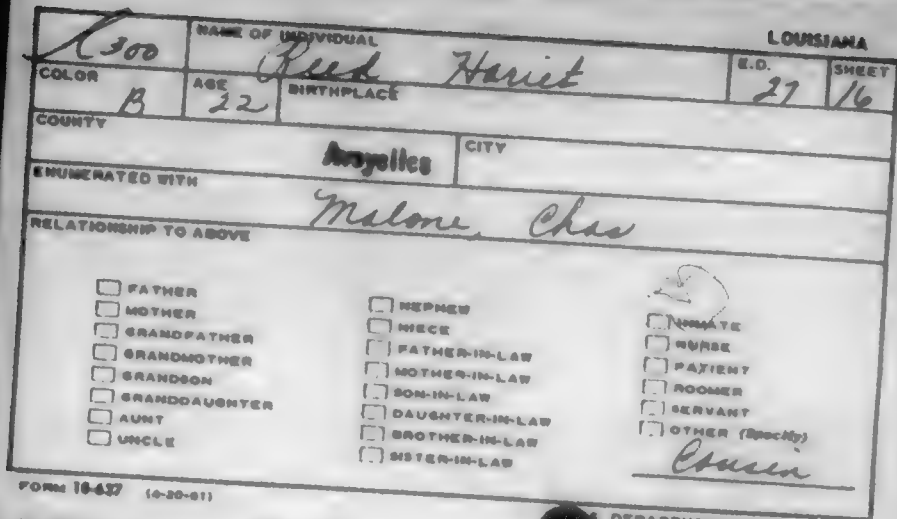 LOUISIANA
R300 NAME OF INDIVIDUAL Reed Hariet E.D. 27 SHEET 16
COLOR B AGE 22 BIRTHPLACE
COUNTY Avoyelles CITY
ENUMERATED WITH Malone, Chas
RELATIONSHIP TO ABOVE
FATHER
MOTHER
GRANDFATHER
GRANDMOTHER
GRANDSON
GRANDDAUGHTER
AUNT
UNCLE
NEPHEW
NIECE
FATHER-IN-LAW
MOTHER-IN-LAW
SON-IN-LAW
DAUGHTER-IN-LAW
BROTHER-IN-LAW
SISTER-IN-LAW
INMATE
NURSE
PATIENT
ROOMER
SERVANT
OTHER (Specify)
Cousin
FORM 18-637 (4-20-61)